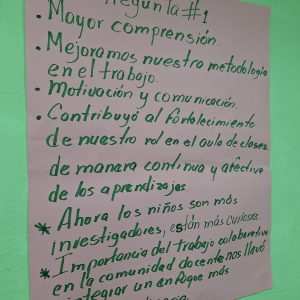 Pregunta #1
• Mayor comprensión.
• Mejoramos nuestra metodología
en el trabajo.
• Motivación y comunicación.
• Contribuyó al fortalecimiento
de nuestro rol en el aula de clases.
de manera continua y afectiva
de los aprendizajes
* Ahora los niños son más
investigadores, están más curiosos.
* Importancia del trabajo colaborativo
en la comunidad docente nos llevó
integrar un enfoque más